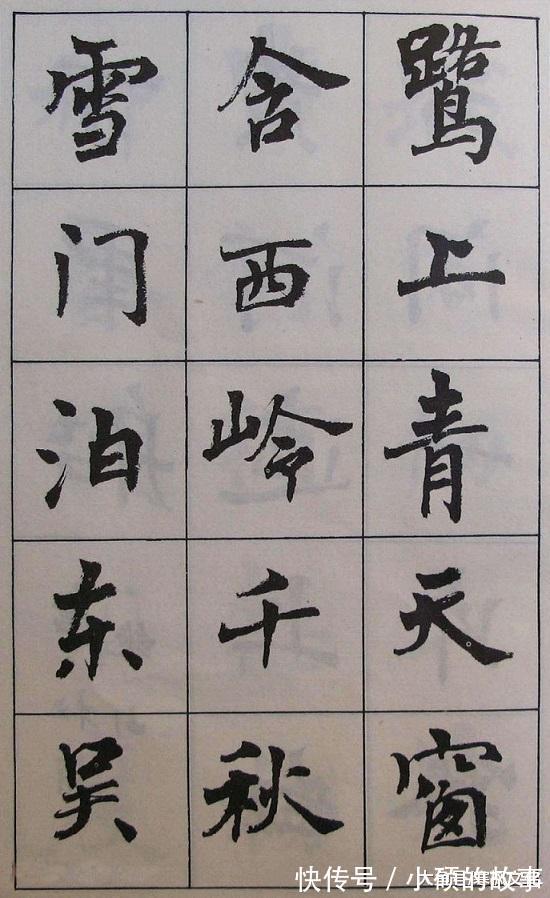 鹭上青天窗
含西岭千秋
雪门泊东吴
快传号 / 小硕的故事